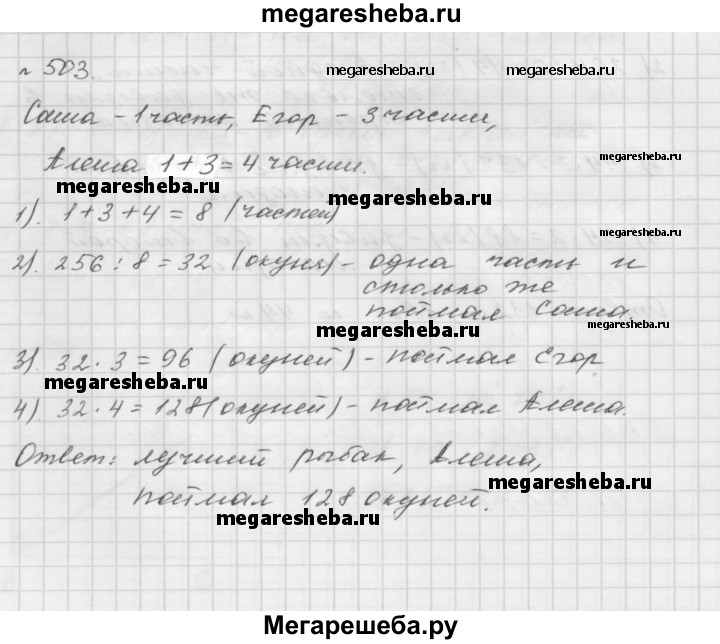 megaresheba.ru
№ 503.
megaresheba.ru megaresheba.ru
Саша - 1 часть, Егор - 3 части,
Алеша 1 + 3 = 4 части.
megaresheba.ru megaresheba.ru
1). 1 + 3 + 4 = 8 (частей)
megaresheba.ru
2). 256 : 8 = 32 (окуня) - одна часть и
столько же
поймал Саша.
megaresheba.ru megaresheba.ru
3). 32 · 3 = 96 (окуней) - поймал Егор
megaresheba.ru
4). 32 · 4 = 128 (окуней) - поймал Алеша.
Ответ: лучший рыбак, Алеша,
megaresheba.ru
поймал 128 окуней.
megaresheba.ru
Мегарешеба.ру